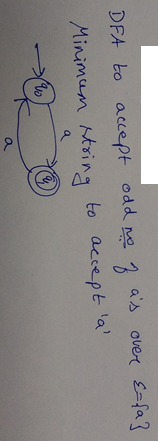 DFA to accept odd no of a's over Σ={a}
Minimum string to accept 'a'
a
q0
q1
a